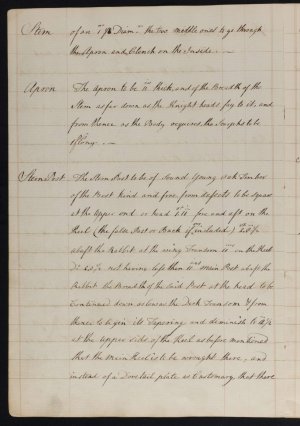 Stem of an In 1/8 Diamr. the two middle ones to go through
the Apron and Clench on the Inside. —
Apron The Apron to be In thick, and of the Breadth of the
Stem as far down as the Knight heads fay to it, and
from thence as the Body requires, the Scarphs to be
long. —
Stern Post The Stern Post to be of sound Young oak Timber
of the Best kind and free from defects to be square
at the upper end or head fore and aft on the
Keel (the false Post or Back if included)
abaft the Rabbit at the wing Transom on the Keel
Do. not having less then main Post abaft the
Rabbit the Breadth of the said Post at the head to be
Continued down as low as the Deck Transom & from
thence to begin its Tapering and deminish to
at the upper side of the Keel as before mentioned
that the Main Keel is to be wrought there, and
instead of a Dovetail plate as Customary, that there